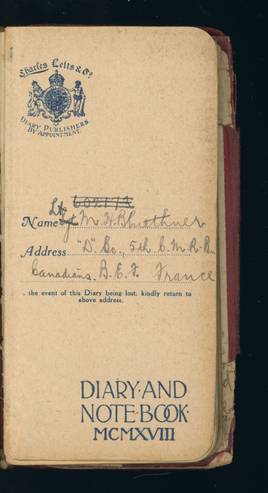 Charles Letts & Co
DIARY PUBLISHERS
BY APPOINTMENT
Name Lt M. H.
Address "D" Co., 5th C.M.R. Bn
Canadians. B.E.F. France
, the event of this Diary being lost, kindly return to
above address.
DIARY·AND
NOTE·BOOK·
MCMXVIII